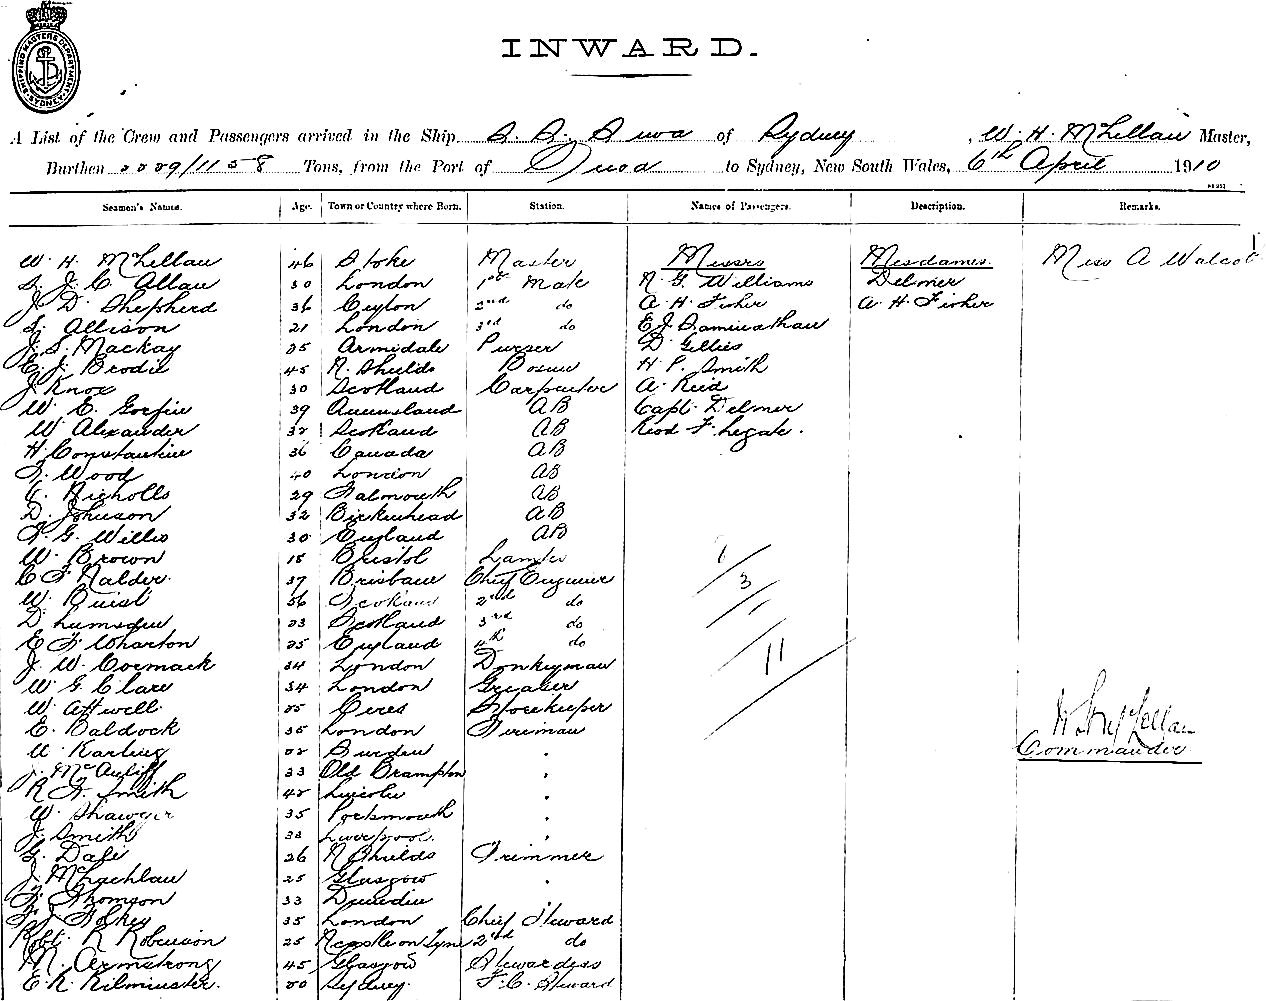 SHIPPING MASTERS DEPARTMENT SYDNEY
INWARD.
A List of the Crew and Passengers arrived in the Ship S. S. Suva of Sydney, W. H. McLellan Master,
Burthen 2229/1158 Tons, from the Port of Suva to Sydney, New South Wales, 6th April 1910
Seamen's Names. Age. Town or Country where Born. Station. Names of Passengers. Description. Remarks.
W. H. McLellan 46 Stoke Master Messrs Mesdames. Miss A Walcot
S. J. C. Allan 30 London 1st Mate R G. Williams Delmer
J. D. Shepherd 36 Ceylon 2nd do A. H. Fisher A H Fisher
S. Allison 21 London 3rd do E J.
J. S. Mackay 25 Armidale Purser D Gillies
E. J. Brodie 45 N. Shields Bosun H P. Smith
J Knox 30 Scotland Carpenter A. Reid
W. E. 39 Queensland AB Capt. Delmer
W Alexander 32 Scotland AB Revd F. Legate.
H Constantine 36 Canada AB
F. Wood 40 London AB
C. Nicholls 29 Falmouth AB
D. Johnson 32 Birkenhead AB
F. G. Willis 30 England AB
W. Brown 18 Bristol Lamps
C F Nalder. 37 Brisbane Chief Engineer 3
W. Buist 56 Scotland 2nd do
D Lumsden 23 Scotland 3rd do
E F Wharton 25 England 4th do
J. W. Cormack 34 London Donkeyman 11
W G Clare 34 London Greaser
W. Attwell. 25 Ceres Storekeeper
E. Baldock 35 London Fireman W. H. McLellan
W Karling 22 Commander
J. McAuliff 33 Old Brampton "
R. H. Smith 42 Lincoln "
W. 35 Portsmouth "
J. Smith 33 Liverpool. "
G. Dale 26 N Shields Trimmer
J. McLachlan 25 Glasgow "
F. Thomson 33 Dunedin "
F. J. 35 London Chief Steward
Robt. R Robinson 25 Newcastle on Tyne 2nd do
M. Armstrong 45 Glasgow Stewardess
E. R. Kilminster. 20 Sydney. F. C. Steward